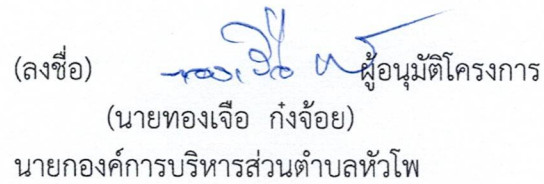 (ลงชื่อ) ผู้อนุมัติโครงการ
(นายทองเจือ ก๋งจ้อย)
นายกองค์การบริหารส่วนตำบลหัวโพ